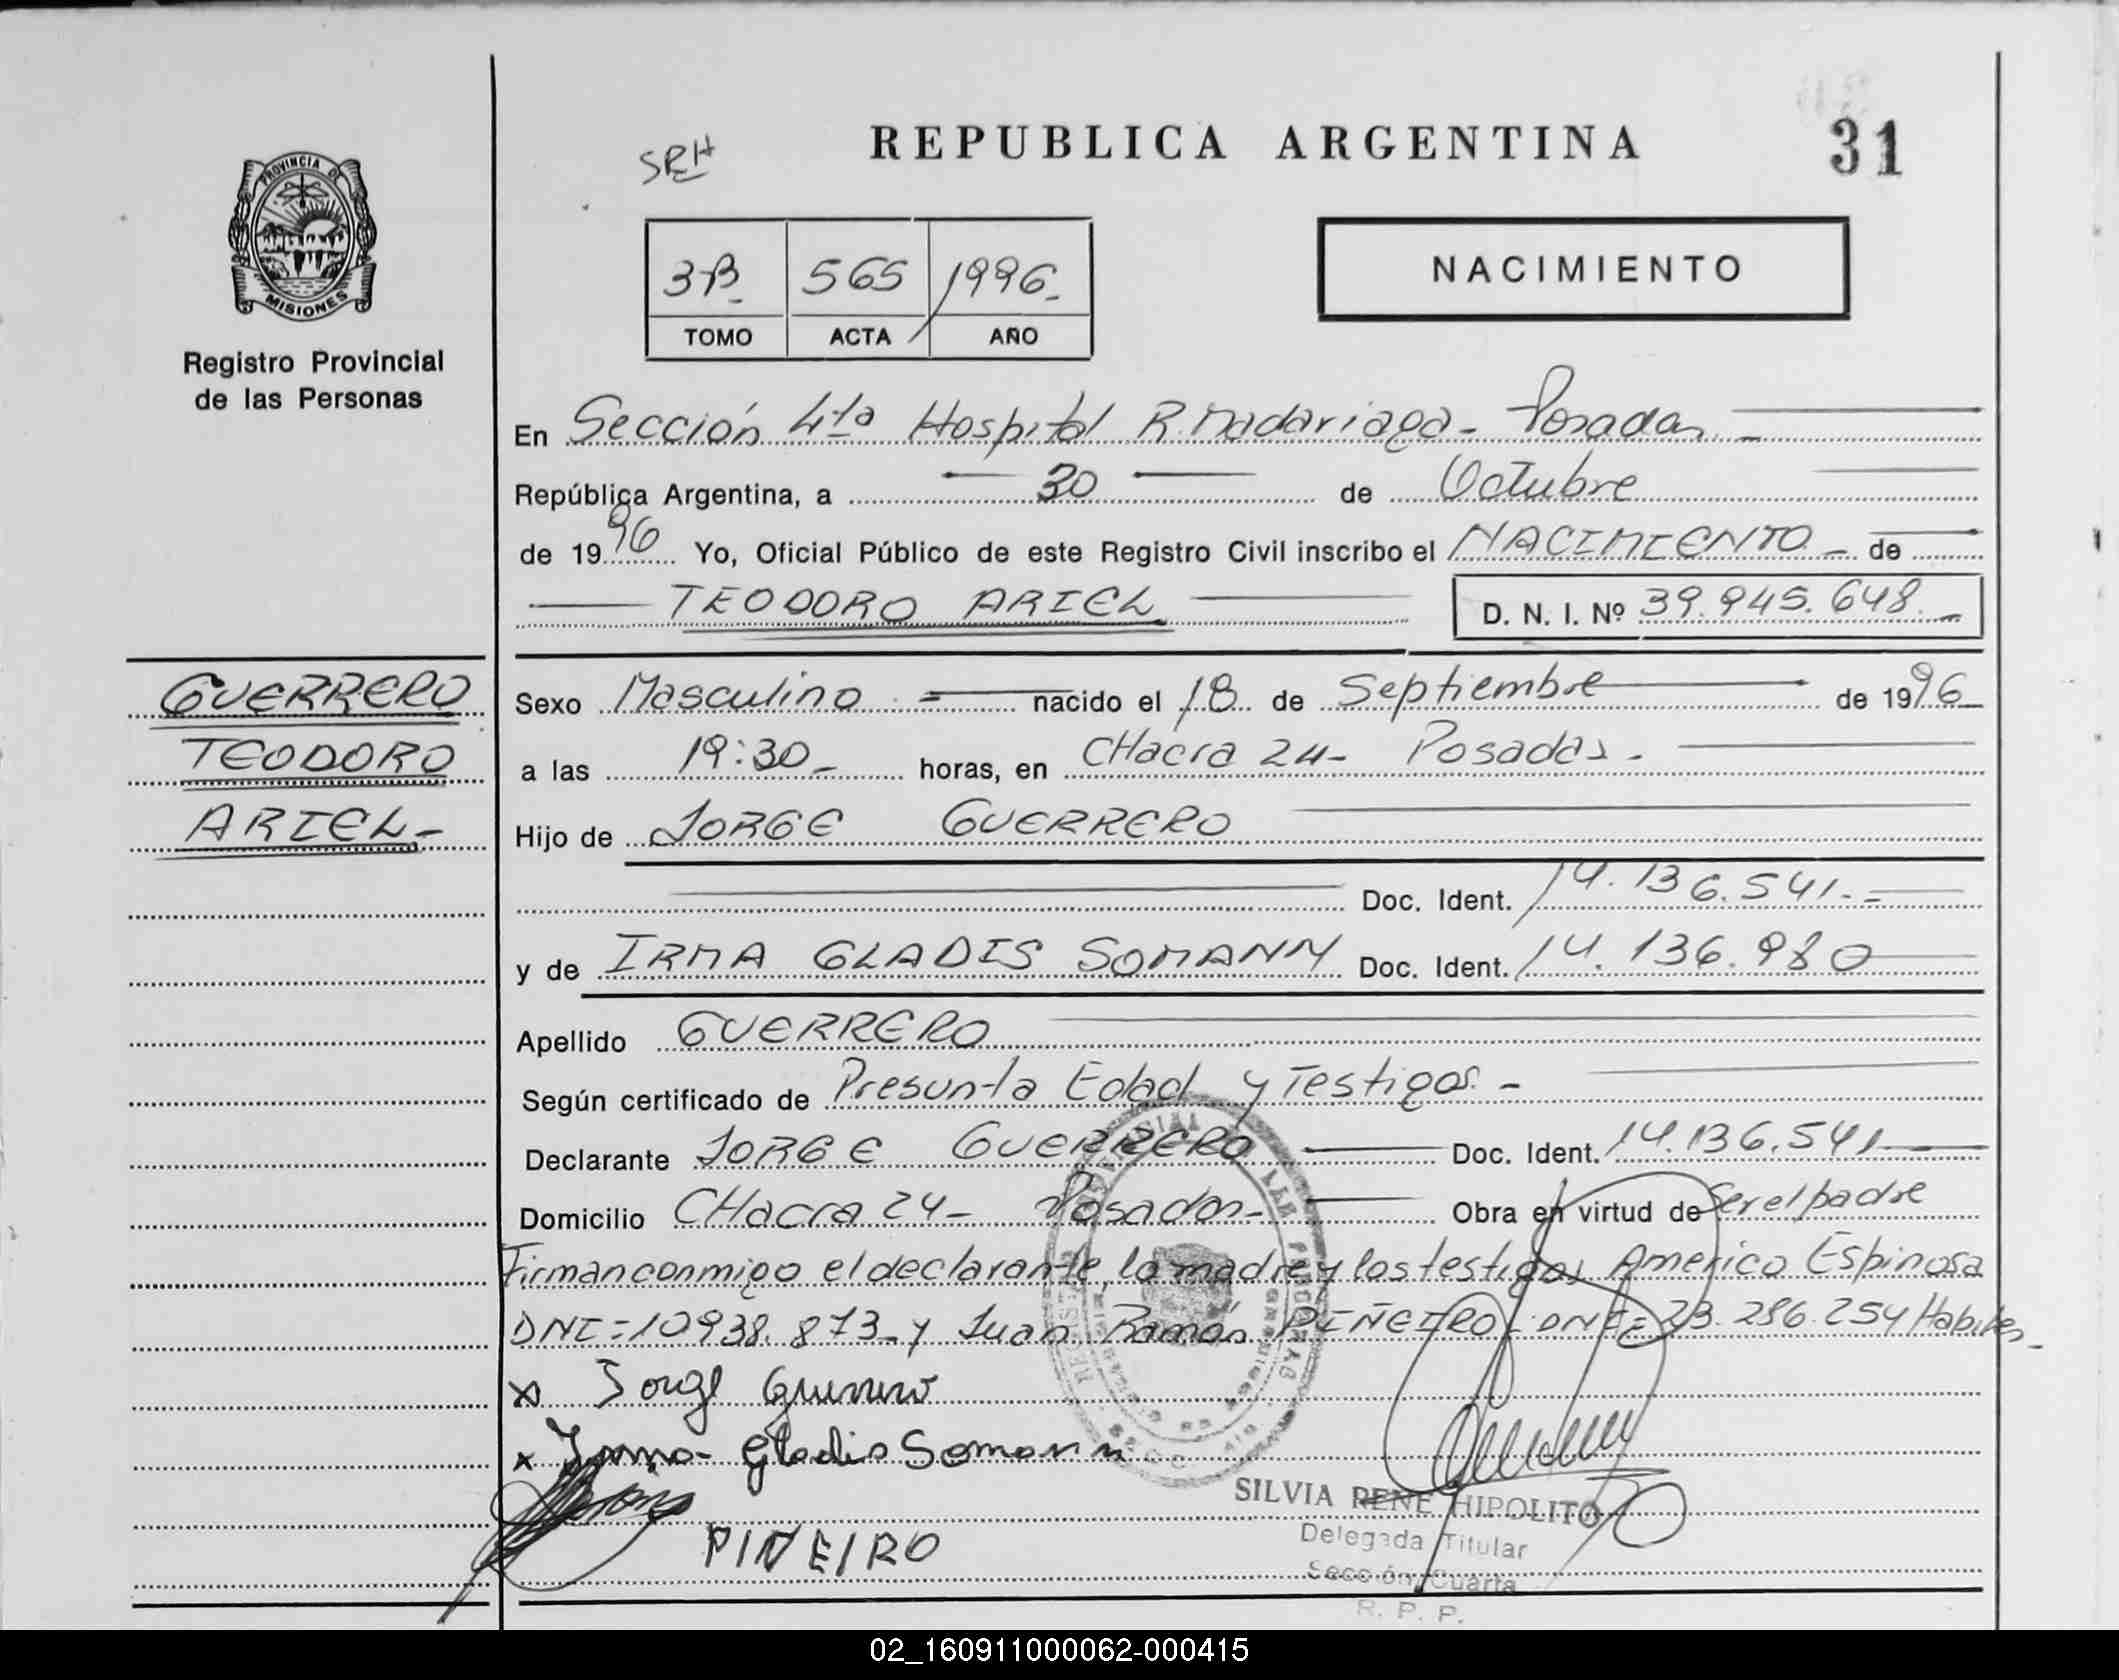 REPUBLICA ARGENTINA
31
SRH
PROVINCIA DE
MISIONES
Registro Provincial
de las Personas
3B- 565 1996-
TOMO ACTA AÑO
NACIMIENTO
En Sección 4ta Hospital R. Madariaga - Posadas -
República Argentina, a 30 de Octubre
de 1996 Yo, Oficial Público de este Registro Civil inscribo el NACIMIENTO - de
TEODORO ARIEL D. N. I. Nº 39.945.648.-
GUERRERO
TEODORO
ARIEL-
Sexo Masculino = nacido el 18 de Septiembre de 1996-
a las 19:30- horas, en CHacra 24- Posadas -
Hijo de JORGE GUERRERO
Doc. Ident. 14.136.541.-
y de IRMA GLADIS SOMANN Doc. Ident. 14.136.980
Apellido GUERRERO
Según certificado de Presunta Edad y Testigos. -
Declarante JORGE GUERRERO Doc. Ident. 14.136.541
Domicilio CHacra 24- Posadas- Obra en virtud de Ser el padre
Firman conmigo el declarante, la madre y los testigos Americo Espinosa
DNI=10938.873- y Juan Ramón PIÑEIRO - DNI= 23.286.254 Habiles-
x Jorge Guerrero
x Irma Gladis Somann
PIÑEIRO
SILVIA RENE HIPOLITO
Delegada Titular
Sección Cuarta
R. P. P.
02_160911000062-000415